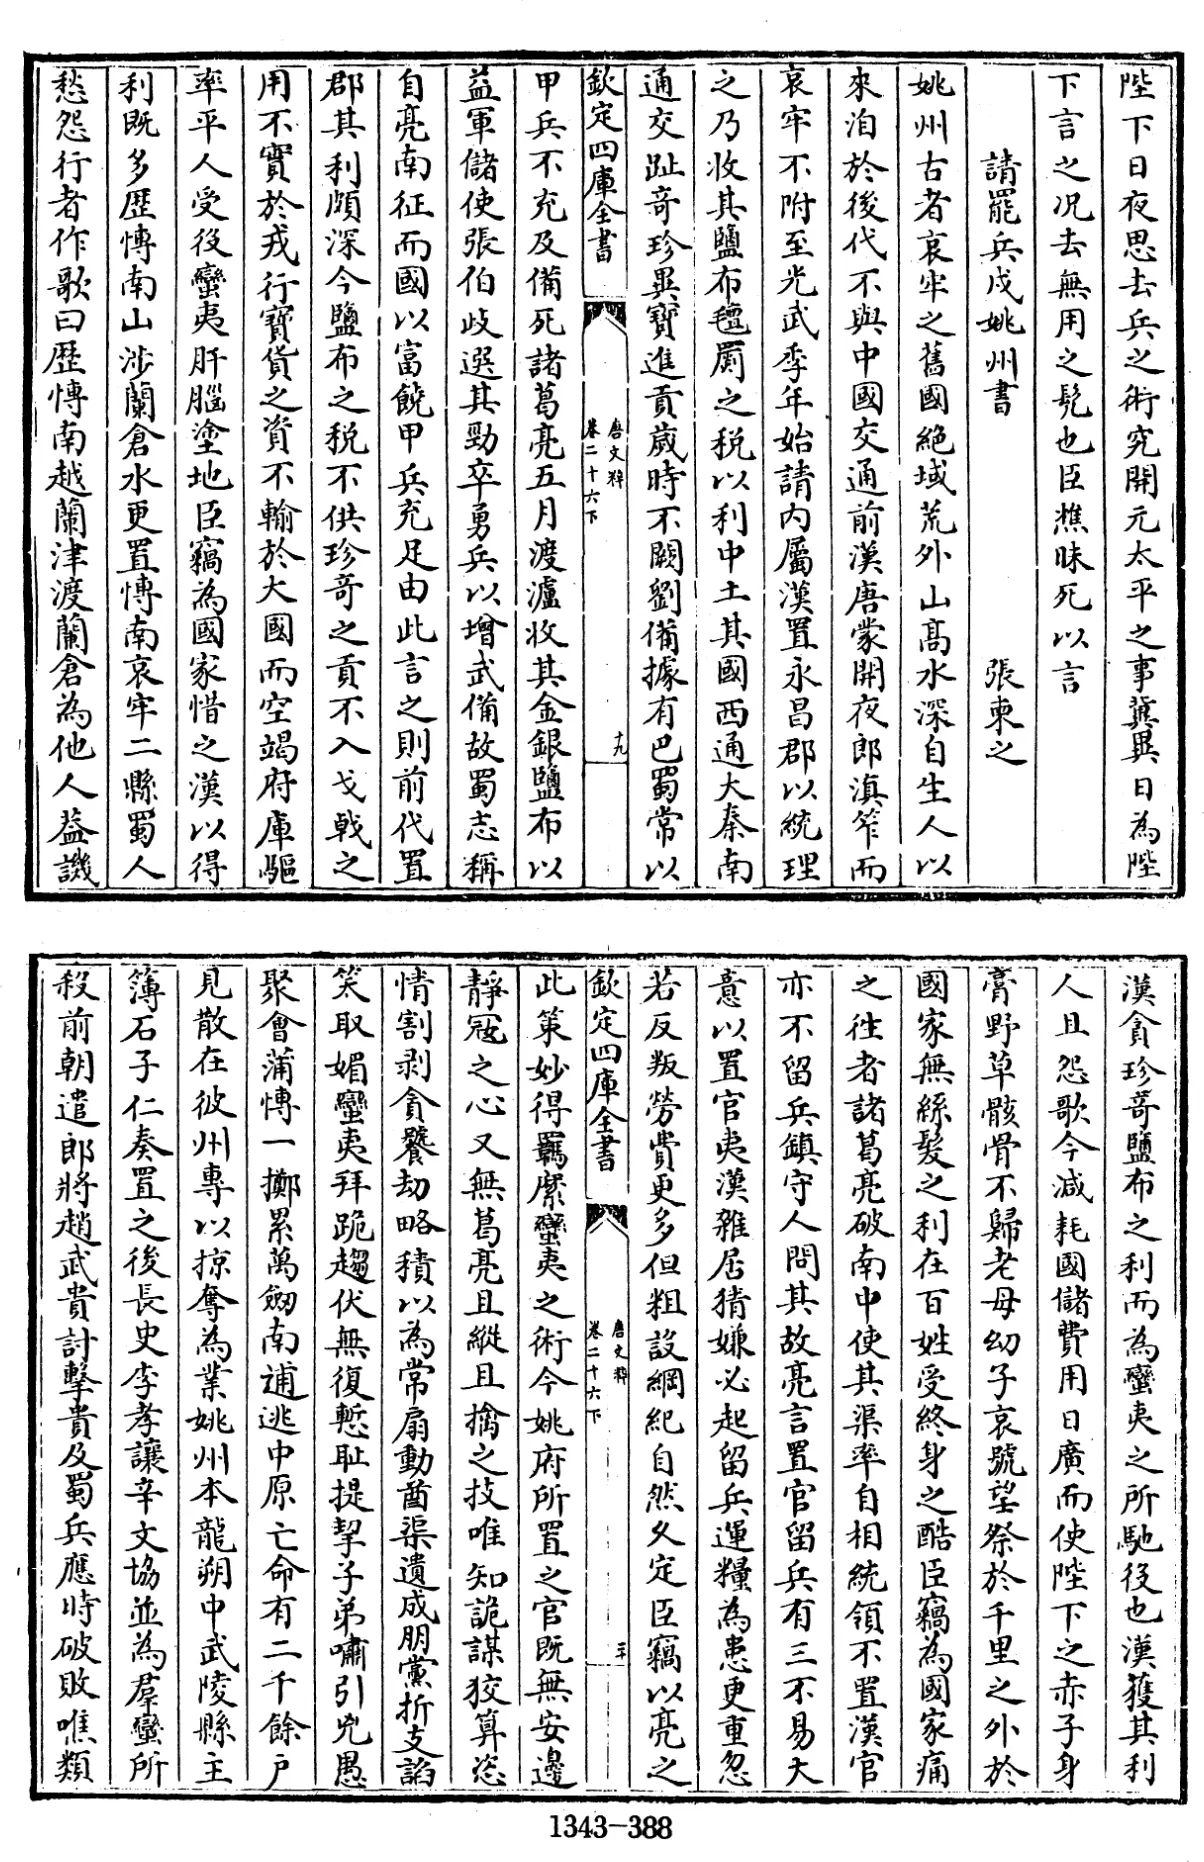 陛下日夜思去兵之術究開元太平之事冀異日為陛
下言之况去無用之髡也臣樵昧死以言
請罷兵戍姚州書
張柬之
姚州古者哀牢之舊國絶域荒外山高水深自生人以
來洎於後代不與中國交通前漢唐蒙開夜郎滇笮而
哀牢不附至光武季年始請内屬漢置永昌郡以統理
之乃收其鹽布氊罽之税以利中土其國西通大秦南
通交趾竒珍異寶進貢歲時不闕劉備據有巴蜀常以
欽定四庫全書
唐文粹
卷二十六下
十九
甲兵不充及備死諸葛亮五月渡瀘收其金銀鹽布以
益軍儲使張伯岐選其勁卒勇兵以增武備故蜀志稱
自亮南征而國以富饒甲兵充足由此言之則前代置
郡其利頗深今鹽布之税不供珍竒之貢不入戈戟之
用不實於戎行寳貨之資不輸於大國而空竭府庫驅
率平人受役蠻夷肝腦塗地臣竊為國家惜之漢以得
利既多歴愽南山涉蘭倉水更置愽南哀牢二縣蜀人
愁怨行者作歌曰歴愽南越蘭津渡蘭倉為他人益譏
漢貪珍竒鹽布之利而為蠻夷之所馳役也漢獲其利
人且怨歌今減耗國儲費用日廣而使陛下之赤子身
膏野草骸骨不歸老母幼子哀號望祭於千里之外於
國家無絲髮之利在百姓受終身之酷臣竊為國家痛
之徃者諸葛亮破南中使其渠率自相統領不置漢官
亦不留兵鎮守人問其故亮言置官留兵有三不易大
意以置官夷漢雜居猜嫌必起留兵運糧為患更重忽
若反叛勞費更多但粗設綱紀自然久定臣竊以亮之
欽定四庫全書
唐文粹
卷二十六下
二十
此策妙得羈縻蠻夷之術今姚府所置之官既無安邊
靜寇之心又無葛亮且縱且擒之技唯知詭謀狡算恣
情割剥貪饕劫略積以為常扇動酋渠遺成朋黨折支諂
笑取媚蠻夷拜跪趨伏無復慙耻提挈子弟嘯引兇愚
聚會蒲愽一擲累萬劒南逋逃中原亡命有二千餘户
見散在彼州專以掠奪為業姚州本龍朔中武陵縣主
簿石子仁奏置之後長史李孝讓辛文協並為羣蠻所
殺前朝遣郎將趙武貴討擊貴及蜀兵應時破敗唯類
1343-388